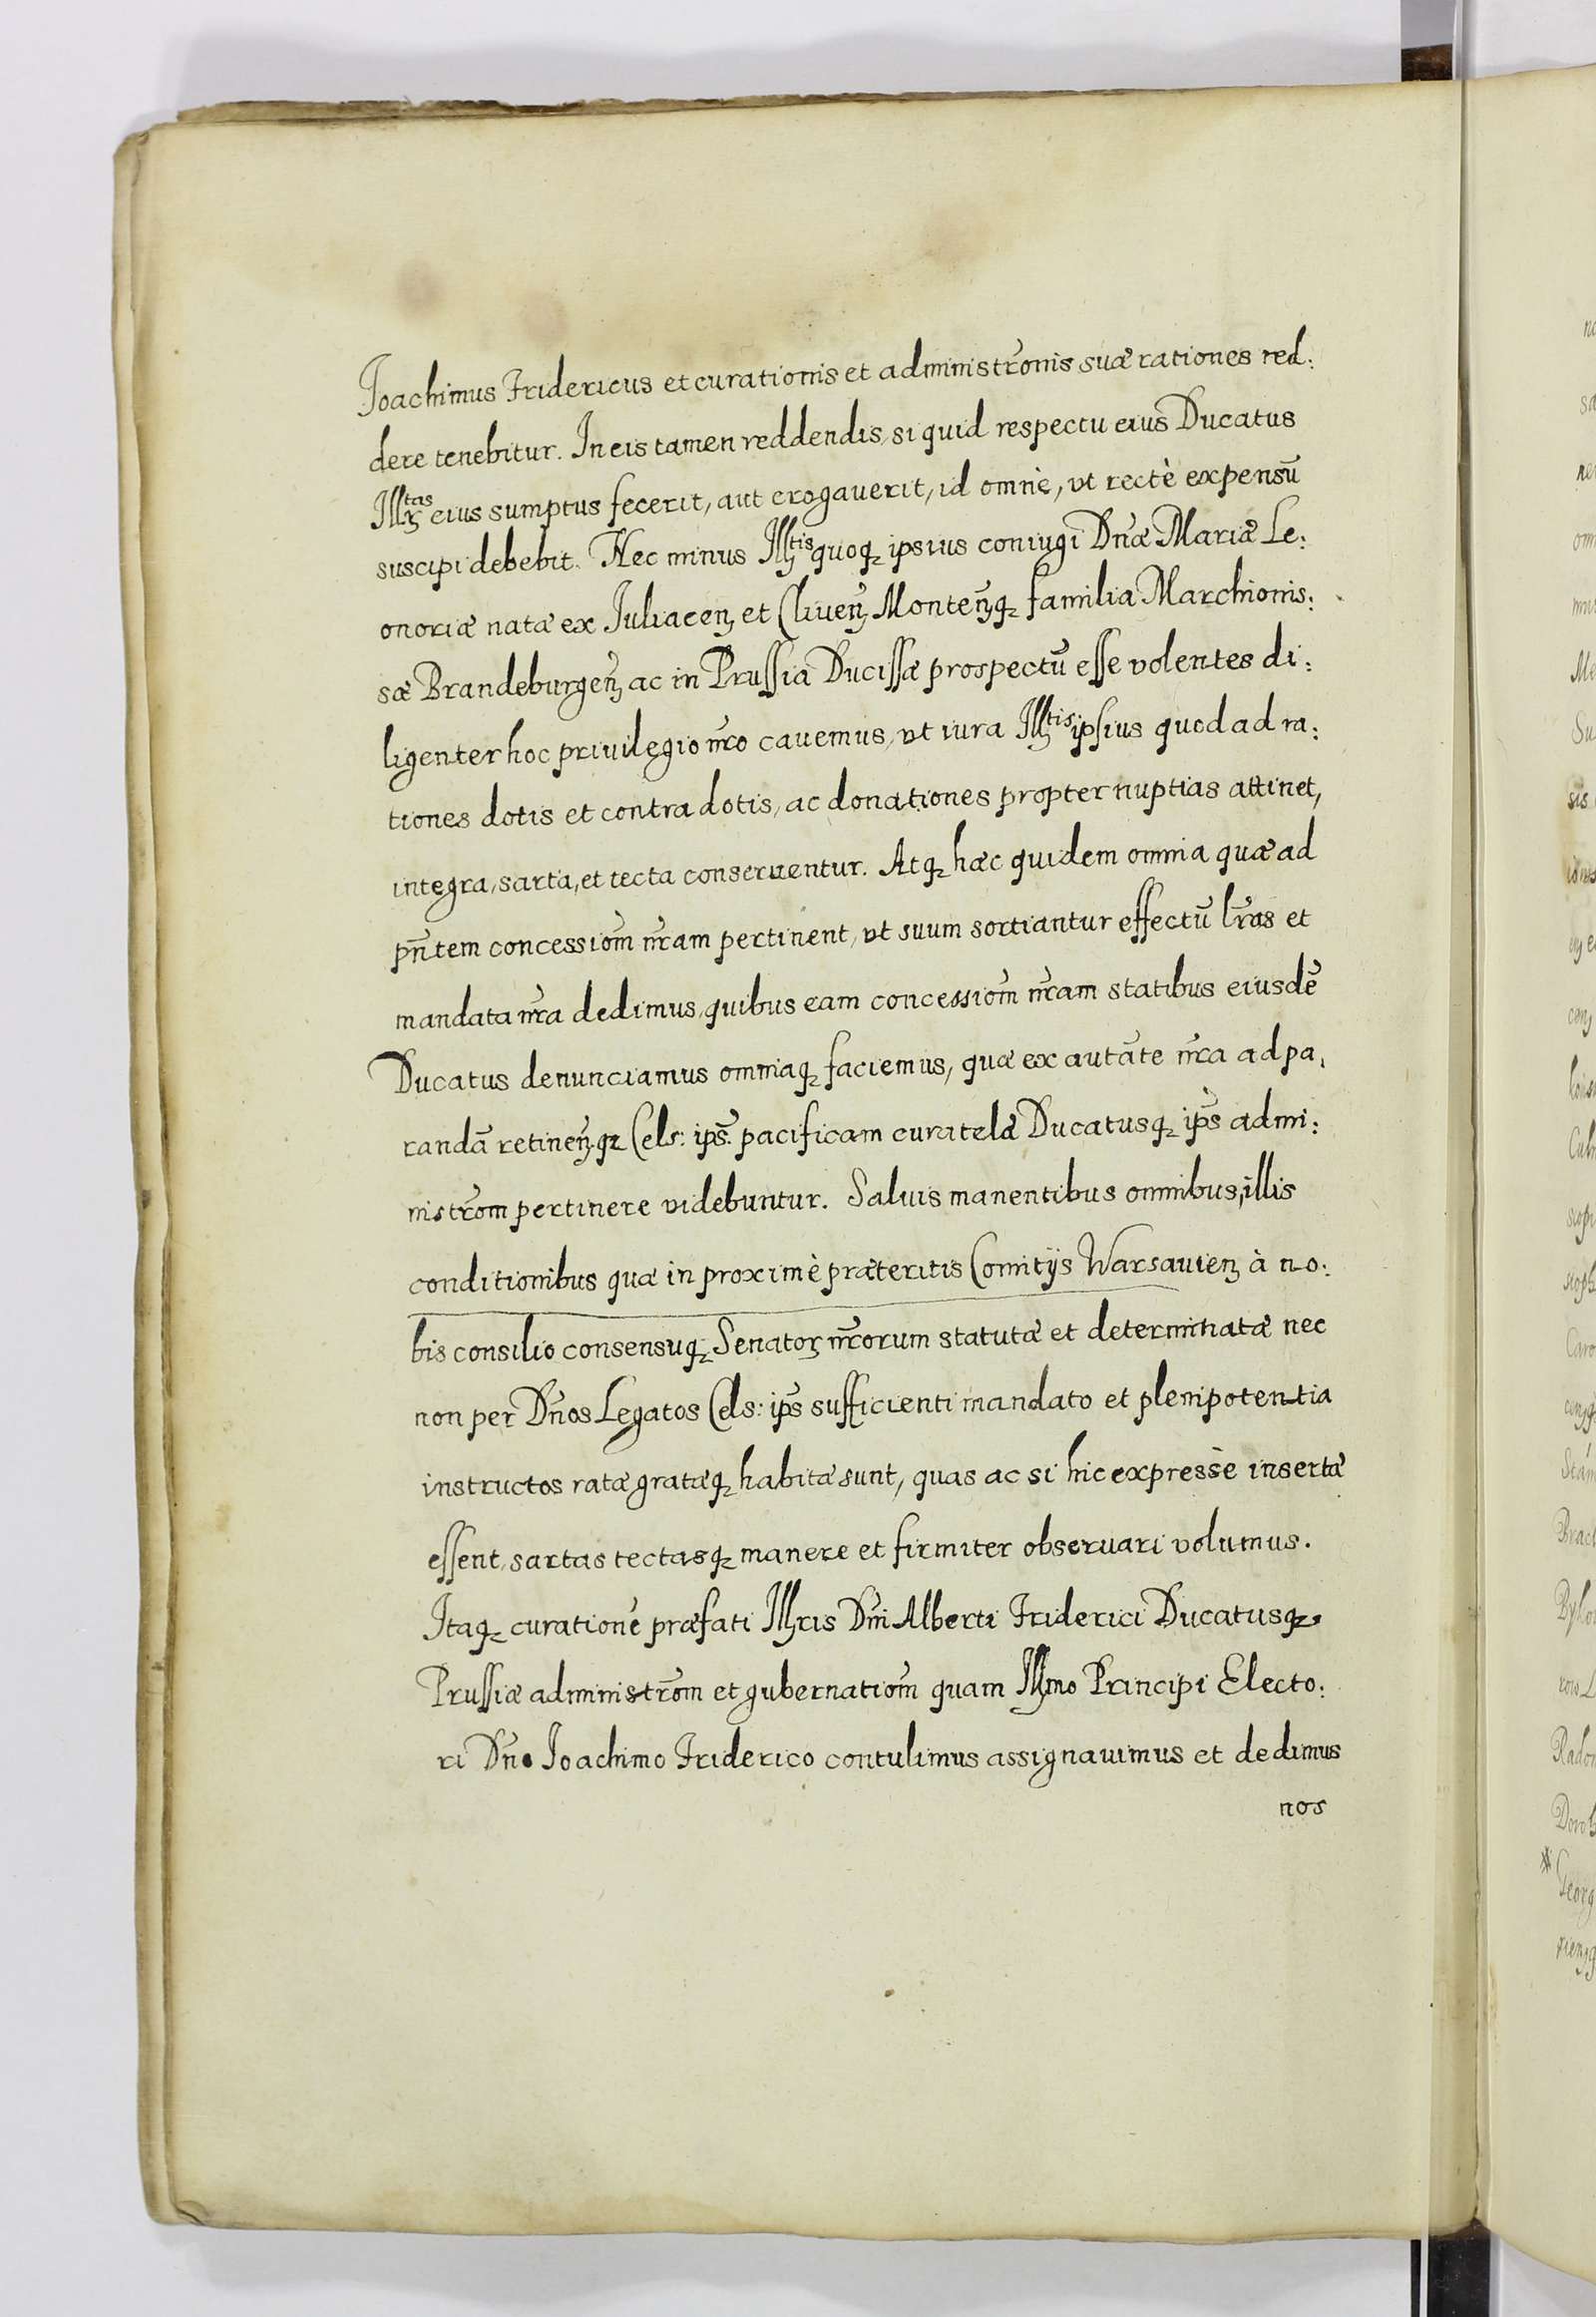 Joachimus Fridericus et curationis et administrõnis suæ rationes red:
dere tenebitur. In eis tamen reddendis, si quid respectu eius Ducatus
Illꝫtas eius sumptus fecerit, aut erogauerit, id omne, vt rectè expensũ
suscipi debebit. Nec minus Illꝫtis quoqꝫ ipsius coniugi Dñæ Mariæ Le:
onoriæ natæ ex Juliaceñ et Cliueñ Monteñqꝫ familia Marchionis:
sæ Brandeburgeñ ac in Prussia Ducissæ prospectũ esse volentes di:
ligenter hoc priuilegio nr̃o cauemus, vt iura Illꝫtis ipsius quod ad ra:
tiones dotis et contra dotis, ac donationes propter nuptias attinet,
integra, sarta, et tecta conseruentur. Atqꝫ hæc quidem omnia quæ ad
pñtem concessiõm nr̃am pertinent, vt suum sortiantur effectũ lr̃as et
mandata nr̃a dedimus, quibus eam concessiõm nr̃am statibus eiusdẽ
Ducatus denunciamus omniaqꝫ faciemus, quæ ex autãte nr̃a ad pa,
randã retineñqꝫ Cels: ips̃. pacificam curatelã Ducatusqꝫ ips̃ admi:
nistrõm pertinere videbuntur. Saluis manentibus omnibus, illis
conditionibus quæ in proximè præteritis Comitijs Warsauieñ à no:
bis consilio consensuqꝫ Senatorꝫ nr̃orum statutæ et determinatæ nec
non per Dños Legatos Cels: ips̃ sufficienti mandato et plenipotentia
instructos ratæ gratæqꝫ habitæ sunt, quas ac si hic expressè insertæ
essent, sartas tectasqꝫ manere et firmiter obseruari volumus.
Itaqꝫ curationẽ præfati Illꝫris Dñi Alberti Friderici Ducatusqꝫ
Prussiæ administrõm et gubernatiõm quam Illꝫmo Principi Electo:
ri Dño Joachimo Friderico contulimus assignauimus et dedimus
nos